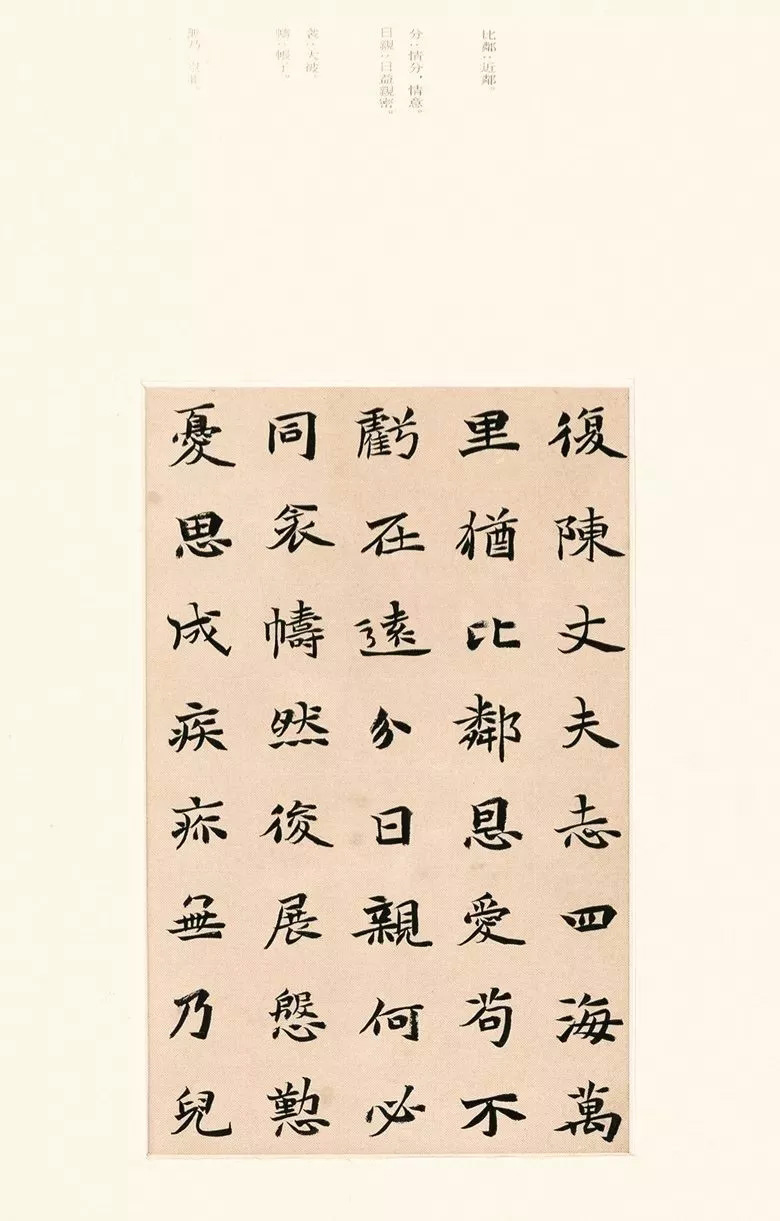 比鄰：近鄰。
分：情分，情意。
日親：日益親密。
衾：大被。
幬：帳子。
無乃：
復陳丈夫志四海萬
里猶比鄰恩愛苟不
虧在遠分日親何必
同衾幬然後展慇懃
憂思成疾疢無乃兒